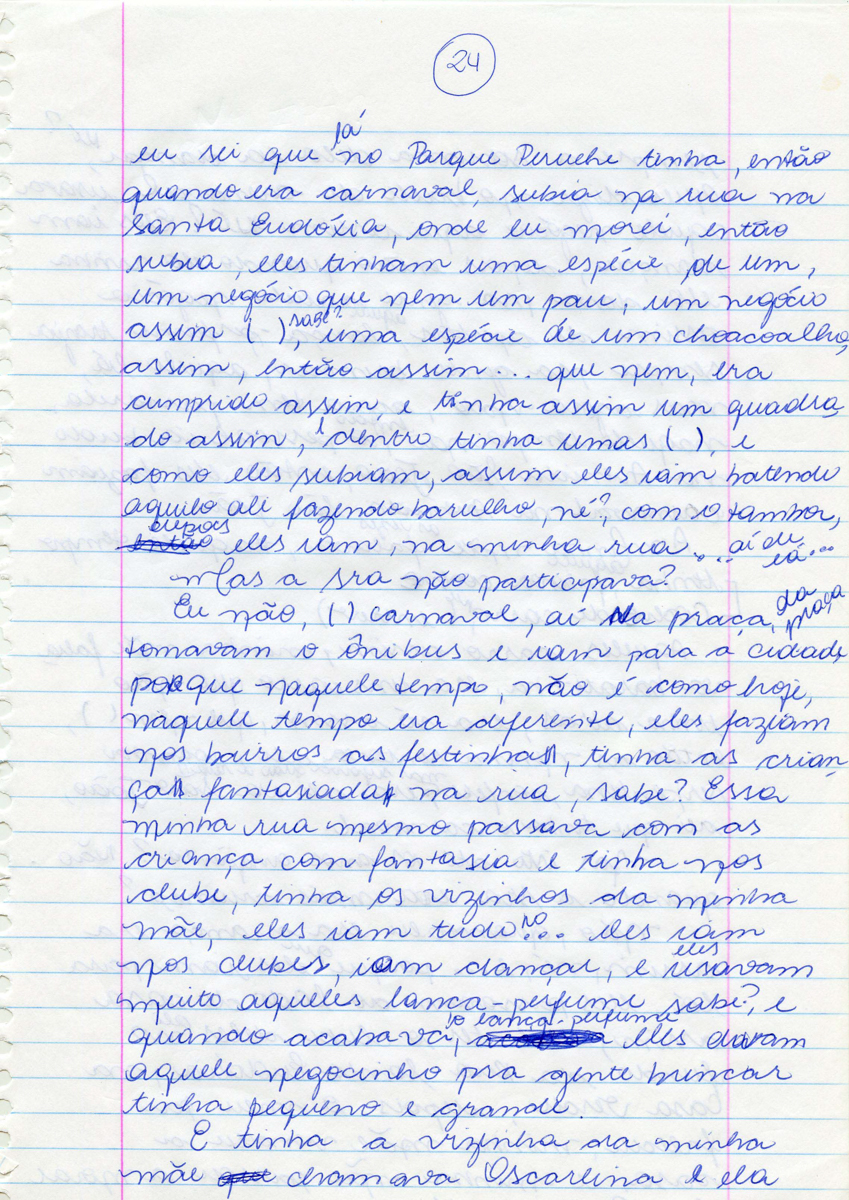 24
eu sei que lá no Parque Peruche tinha, então
quando era carnaval, subia na rua na
Santa Eudóxia, onde eu morei, então
subia, eles tinham uma espécie de um,
um negócio que nem um pau, um negócio
assim ( ), sabe? uma espécie de um choacoalho,
assim, então assim... que nem, era
cumprido assim, e tinha assim um quadra
do assim, e dentro tinha umas ( ), e
como eles subiam, assim eles iam batendo
aquilo ali fazendo barulho, né?, com o tambor,
então depois eles iam, na minha rua... aí de lá...
Mas a sra não participava?
Eu não, ( ) carnaval, aí Na praça, da praça
tomavam o Ônibus e iam para a cidade,
porque naquele tempo, não é como hoje,
naquele tempo era diferente, eles faziam
nos bairros as festinhas, tinha as crian
ças fantasiadas na rua, sabe? Essa
minha rua mesmo passava com as
criança com fantasia e tinha nos
clube, tinha os vizinhos da minha
mãe, eles iam tudo no... eles iam
nos clubes, iam dançar, e eles usavam
muito aqueles lança-perfume sabe?, e
quando acabava, o lança-perfume eles davam
aquele negocinho pra gente brincar
tinha pequeno e grande.
E tinha a vizinha da minha
mãe que chamava Oscarlina e ela